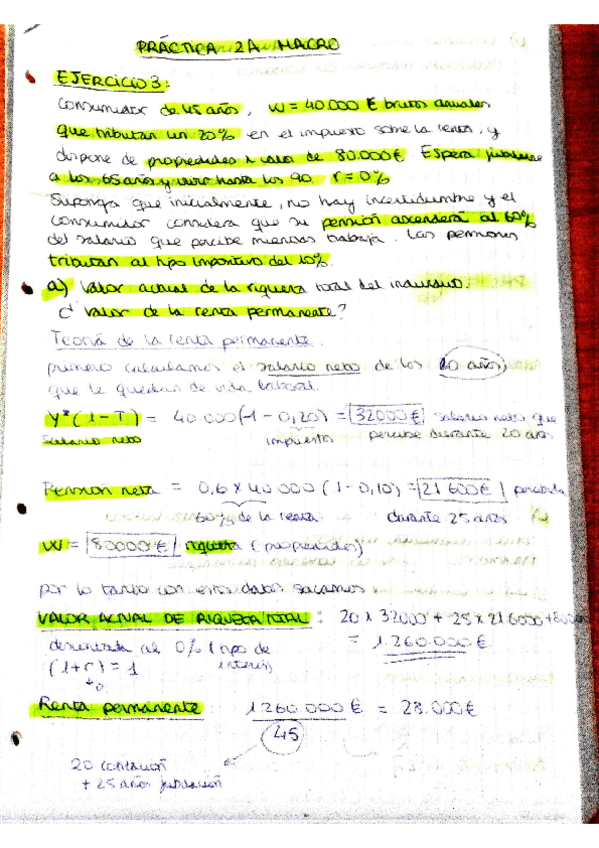 PRÁCTICA 2A MACRO
EJERCICIO 3:
Consumidor de 45 años, w = 40000 € brutos anuales
que tributan un 20% en el impuesto sobre la renta, y
dispone de propiedades x valor de 80.000€. Espera jubilarse
a los 65 años y vivir hasta los 90. r = 0%
Suponga que inicialmente, no hay incertidumbre y el
consumidor considera que su pensión ascenderá al 60%
del salario que percibe mientras trabaja. Las pensiones
tributan al tipo impositivo del 10%.
a) Valor actual de la riqueza total del individuo.
¿ Valor de la renta permanente?
Teoría de la renta permanente.
primero calculamos el salario neto de los 20 años,
que le quedan de vida laboral.
Y*(1-T) = 40 000(1 - 0,20) = 32000€ salario neto que
salario neto impuestos percibe durante 20 años
Pensión neta = 0,6 x 40 000 (1 - 0,10) = 21 600€ percibida
60% de la renta durante 25 años
W = 80000€ riqueza (propiedades)
por lo tanto con estos datos sacamos
VALOR ACTUAL DE RIQUEZA TOTAL : 20 x 32000 + 25 x 216000 + 80000
descontada al 0% tipo de = 1.260.000€
(1+r) = 1 interés
0
Renta permanente : 1260.000€ = 28.000€
45
20 cotización
+ 25 años jubilación